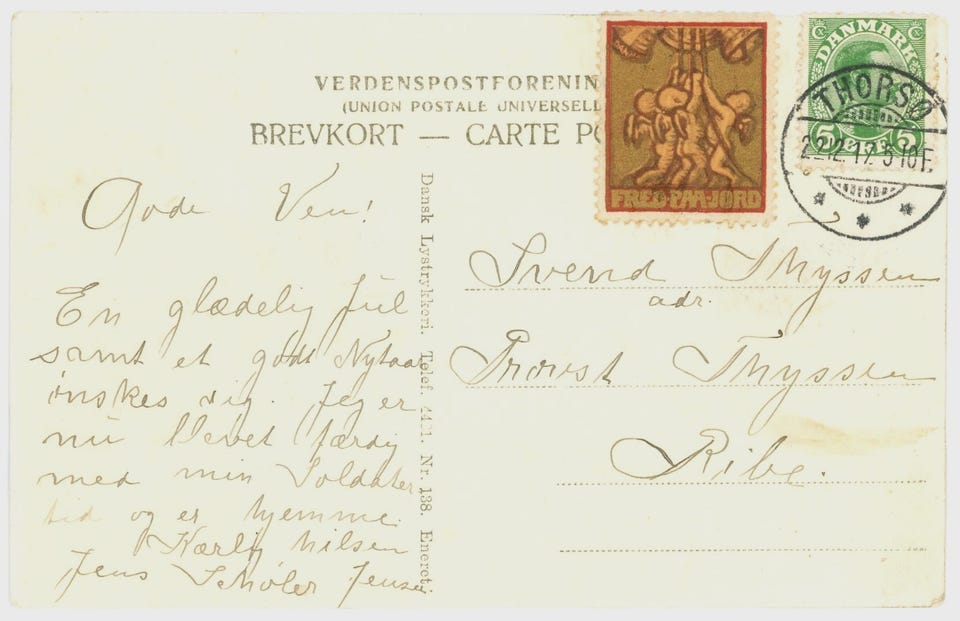 VERDENSPOSTFORENIN
(UNION POSTALE UNIVERSELL
BREVKORT — CARTE PO
FRED·PAA·JORD
DANMARK
5 5
THORSØ
22.12.17. 5-10 F.
Gode Ven!
En glædelig Jul
samt et godt Nytaar
ønskes dig. Jeg er
nu blevet færdig
med min Soldater
tid og er hjemme.
Kærlig hilsen
Jens Schøler Jensen
Dansk Lystrykkeri. Telef. 4421. Nr. 138. Eneret.
Svend Thyssen
adr.
Provst Thyssen
Ribe.